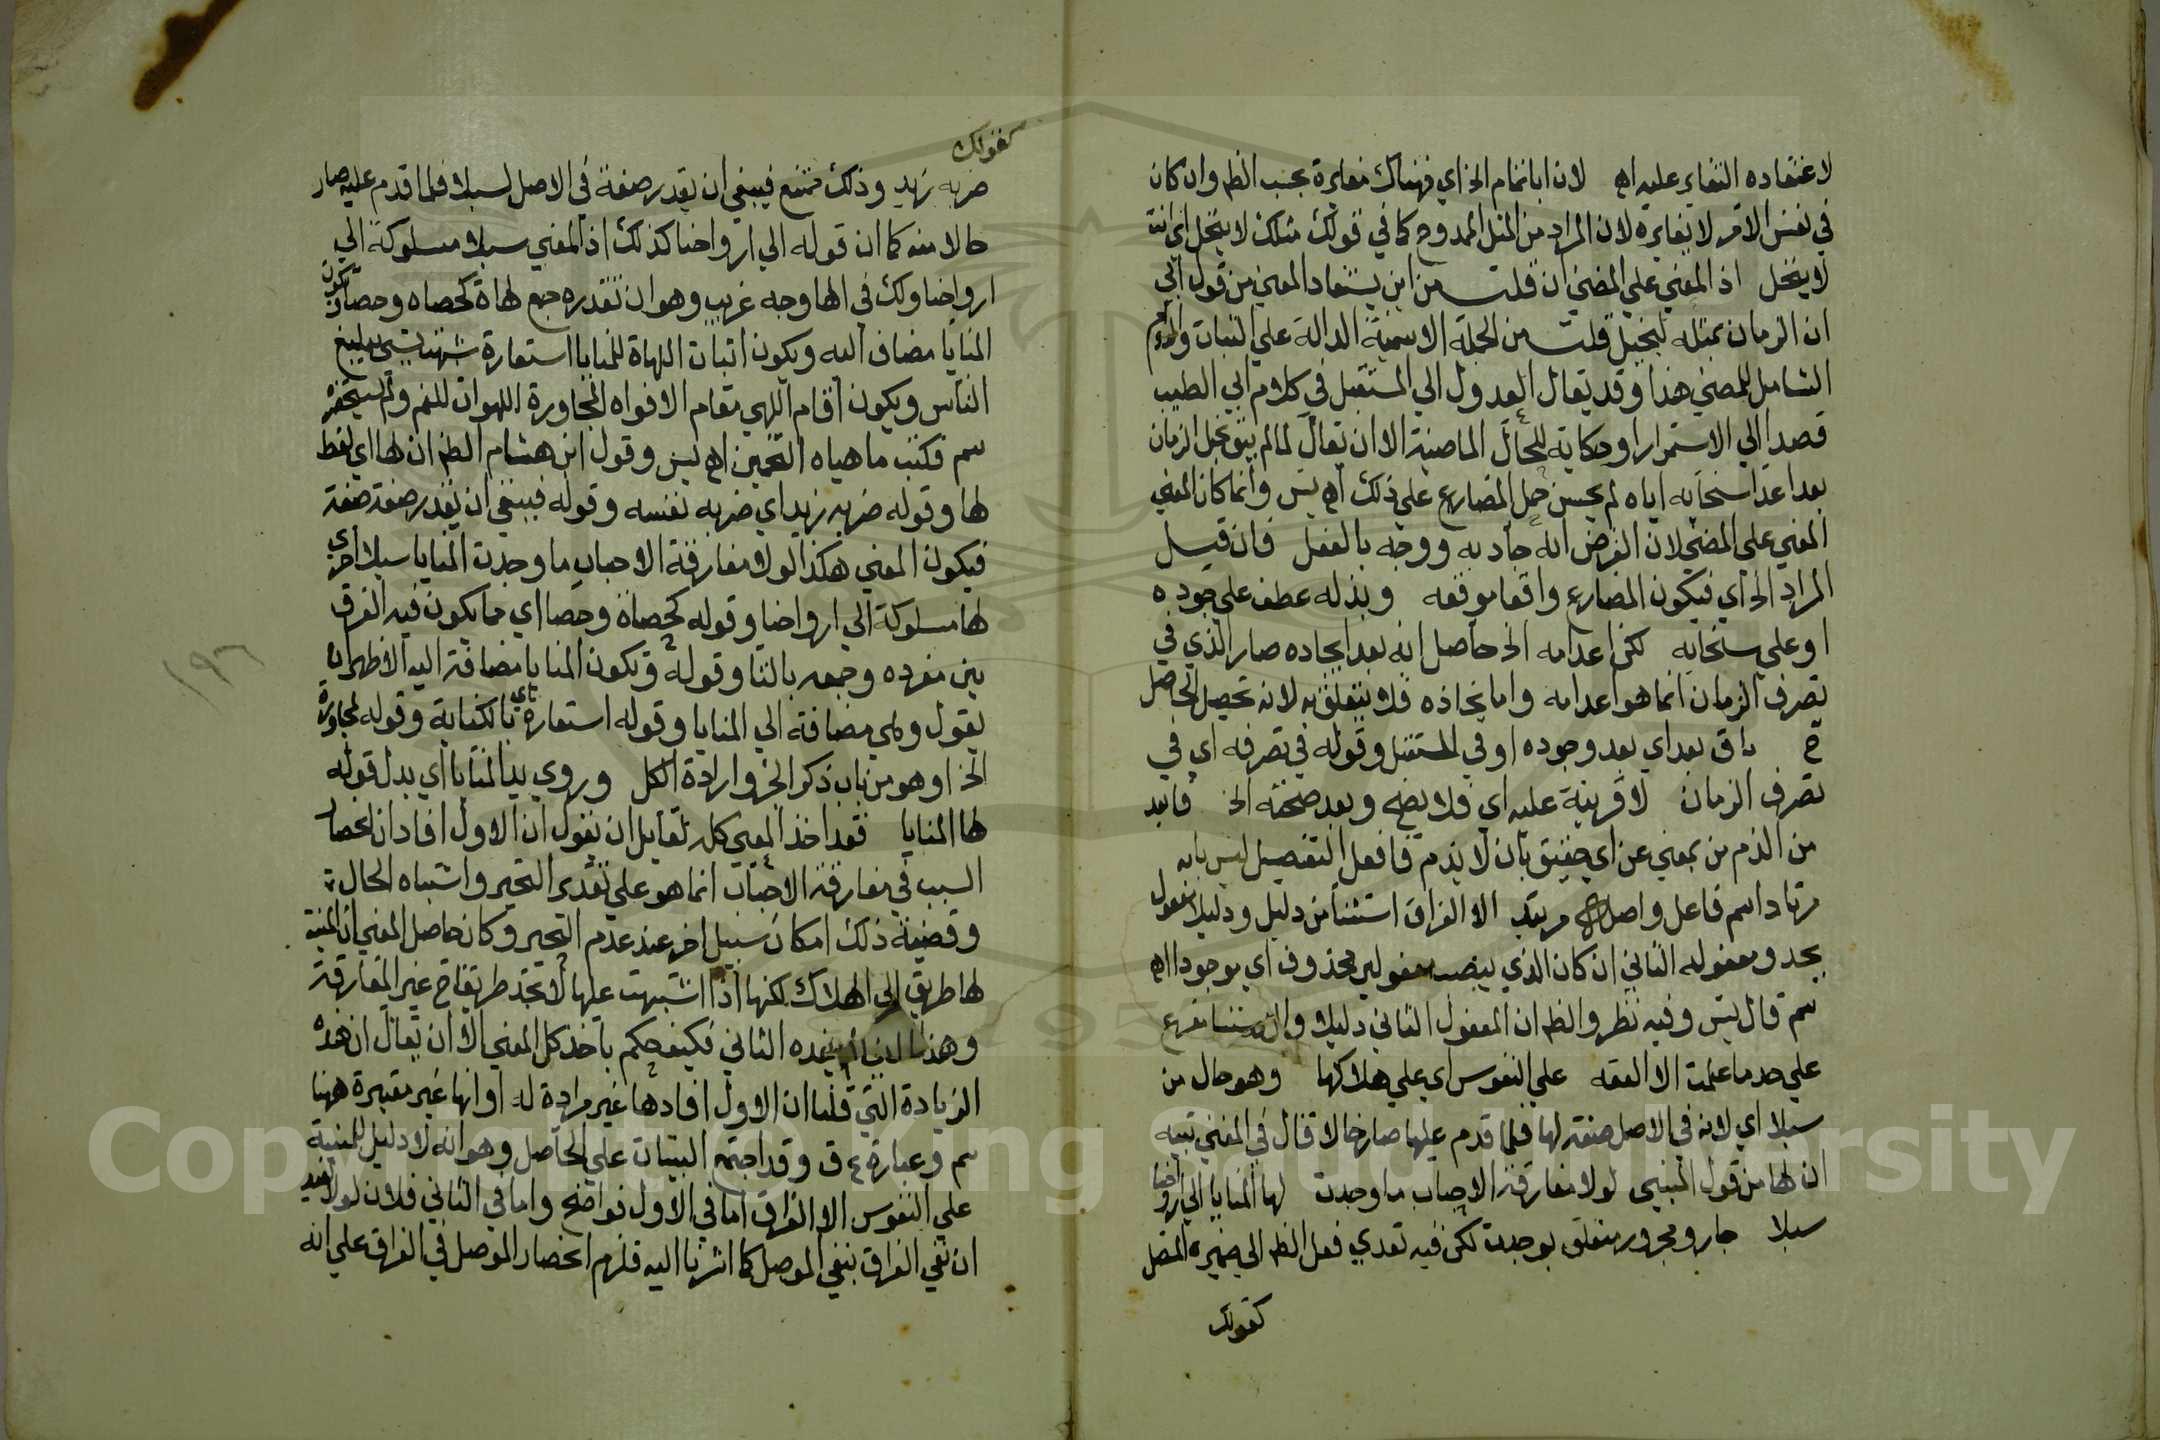 لاعتقاده التغاير عليه اهـ لان ابا تمام الخ اي فهناك مغايرة بحسب الظ وان كان
في نفس الامر لا يغايره لان المراد من المثل الممدوح كما في قولك مثلك لا يبخل اي انت
لا يبخل اذ المعني علي المضي ان قلت من اين يستفاد المعني من قول ابي
ان الزمان بمثله لبخيل قلت من الجملة الاسمية الدالة علي الثبات والدوام
الشامل للمضي هذا وقد يقال العدول الي المستقبل في كلام ابي الطيب
قصدا الي الاستمرار او حكاية للحال الماضية الا ان يقال لما لم يبق بخل الزمان
بعد اعدا سخايه اياه لم يحسن حمل المضارع علي ذلك اهـ يس وانما كان المعني
المعني علي المضي لان الغرض انه جاد به ووجه بالفعل فان قيل
المراد الخ اي فيكون المضارع واقعا موقعه وبذله عطف علي جوده
او علي سخايه لكن اعدامه الخ حاصل انه بعد ايجاده صار الذي في
تصرف الزمان انما هو اعدامه واما ايجاده فلا يتعلق به لانه تحصيل الحاصل
ح باق بعد اي بعد وجوده او في المستقبل وقوله في تصرفه اي في
تصرف الزمان لا قرينة عليه اي فلا يصح وبعد صحته الخ فابعد
من الذم من بمعني عن اي حقيق بان لا يذم فافعل التفضيل ليس بابه
مرتاد اسم فاعل واصله مرتيد الا الفراق استثنا من دليل ودليلا مفعول
يجد ومفعوله الثاني ان كان الذي ينصب مفعولين محذوف اي موجودا اهـ
سم قال يس وفيه نظر والظ ان المفعول الثاني دليلا والاستثنا مفرع
علي حد ما علمت الا الفقه علي النفوس اي علي هلاكها وهو حال من
سبلا اي لانه في الاصل صفة لها فلما قدم عليها صار حالا قال في المغني تنبيه
ان لها من قول المتنبي لولا مفارقة الاحباب ما وجدت لها المنايا الي ارواحنا
سبلا جار ومجرور متعلق بوجدت لكن فيه تعدي فعل الظ الي ضميره المتصل
كقولك
كقولك
ضربه زيد وذلك ممتنع فينبغي ان يقدر صفة في الاصل لسبلا فلما قدم عليه صار
حالا منه كما ان قوله الي ارواحنا كذلك اذ المعني سبلا مسلوكة الي
ارواحنا ولك في لها وجه غريب وهو ان تقدره جمع لهاة كحصاه وحصا وتكون
المنايا مضاف اليه ويكون اثبات اللهاة للمنايا استعارة شبهت بشي يبتلع
الناس ويكون اقام اللهي مقام الافواه لمجاورة اللهوات للفم ولم يستحضره
سم فكتب ما هياه التخمين اهـ يس وقول ابن هشام الظ ان لها اي لفظ
لها وقوله ضربه زيد اي ضربه نفسه وقوله فينبغي ان يقدر صفة صفة
فيكون المعني هكذا لولا مفارقة الاحباب ما وجدت المنايا سبلا اخري
لها مسلوكة الي ارواحنا وقوله كحصاة وحصا اي مما يكون فيه الفرق
بين مفرده وجمعه بالتا وقوله وتكون المنايا مضافة اليه الاظهر ان
يقول ولهي مضافة الي المنايا وقوله استعارة اي بالكناية وقوله لمجاورة
الخ او هو من باب ذكر الجز وارادة الكل وروي يد المنايا اي بدل قوله
لها المنايا فقد اخذ المعني كله لقايل ان يقول ان الاول افاد انحصار
السبب في مفارقة الاحباب انما هو علي تقدير التحير واشتباه الحال
وقضية ذلك امكان سبيل اخر عند عدم التحير وكان حاصل المعني ان المنية
لها طريق الي الهلاك لكنها اذا اشتبهت عليها لا تجد طريقا ح غير المفارقة
وهذا لم يفده الثاني فكيف حكم باخذ كل المعني الا ان يقال ان هذه
الزيادة التي قلنا ان الاول افادها غير مرادة له او انها غير معتبرة ههنا
سم وعبارة ع ق وقد اجتمع البيتان علي الحاصل وهو انه لا دليل للمنية
علي النفوس الا الفراق اما في الاول فواضح واما في الثاني فلان لولا تفيد
ان نفي الفراق ينفي الموصل كما اشرنا اليه فلزم انحصار الموصل في الفراق علي انه
١٩٦
Copyright © King Saud University
1957